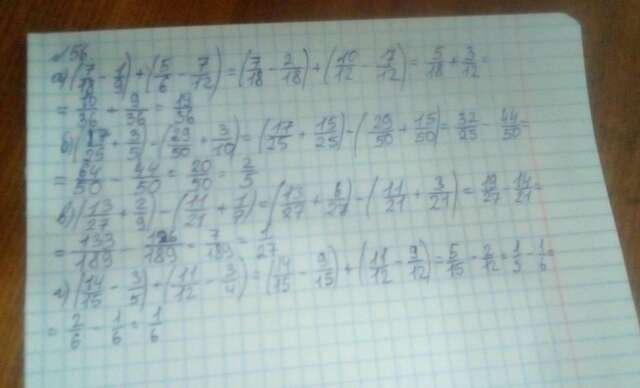 56
а) (7/18 - 1/9) + (5/6 - 7/12) = (7/18 - 2/18) + (10/12 - 7/12) = 5/18 + 3/12 =
= 10/36 + 9/36 = 19/36
б) (17/25 + 3/5) - (29/50 + 3/10) = (17/25 + 15/25) - (29/50 + 15/50) = 32/25 - 44/50 =
= 64/50 - 44/50 = 20/50 = 2/5
в) (13/27 + 2/9) - (11/21 + 1/7) = (13/27 + 6/27) - (11/21 + 3/21) = 19/27 - 14/21 =
= 133/189 - 126/189 = 7/189 = 1/27
г) (14/15 - 3/5) - (11/12 - 3/4) = (14/15 - 9/15) + (11/12 - 9/12) = 5/15 - 2/12 = 1/3 - 1/6 =
= 2/6 - 1/6 = 1/6